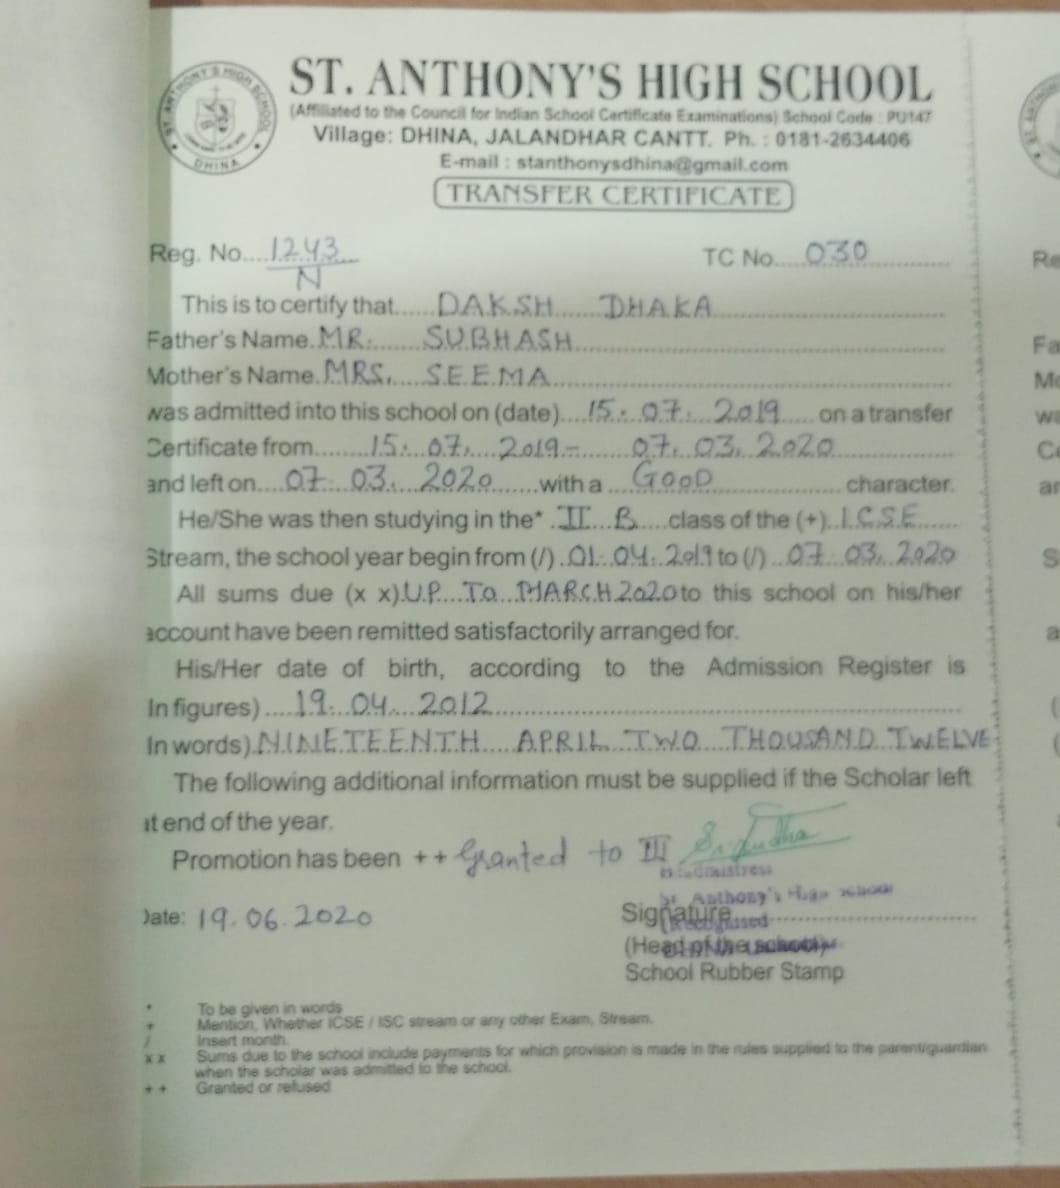 ST. ANTHONY'S HIGH SCHOOL
(Affiliated to the Council for Indian School Certificate Examinations) School Code : PU147
Village: DHINA, JALANDHAR CANTT. Ph. : 0181-2634406
E-mail : stanthonysdhina@gmail.com
TRANSFER CERTIFICATE
ST. ANTHONY'S HIGH SCHOOL
DHINA
Reg. No....1243/N TC No.....030
This is to certify that......DAKSH DHAKA
Father's Name.MR. SUBHASH
Mother's Name.MRS. SEEMA
was admitted into this school on (date)....15.07.2019.....on a transfer
Certificate from........15.07.2019- 07.03.2020
and left on....07.03.2020......with a ...GOOD...character.
He/She was then studying in the* .II B....class of the (+)..I.C.S.E
Stream, the school year begin from (/)..01.04.2019 to (/)...07.03.2020
All sums due (x x) U.P. To MARCH 2020 to this school on his/her
account have been remitted satisfactorily arranged for.
His/Her date of birth, according to the Admission Register is
In figures)....19.04.2012
In words) NINETEENTH APRIL TWO THOUSAND TWELVE
The following additional information must be supplied if the Scholar left
at end of the year.
Promotion has been ++ Granted to III
Headmistress
St. Anthony's High School
Date: 19.06.2020 Signature
(Recognised
(Head of the school)
School Rubber Stamp
* To be given in words
+ Mention, Whether ICSE / ISC stream or any other Exam, Stream.
/ Insert month.
x x Sums due to the school include payments for which provision is made in the rules supplied to the parent/guardian
when the scholar was admitted to the school.
+ + Granted or refused